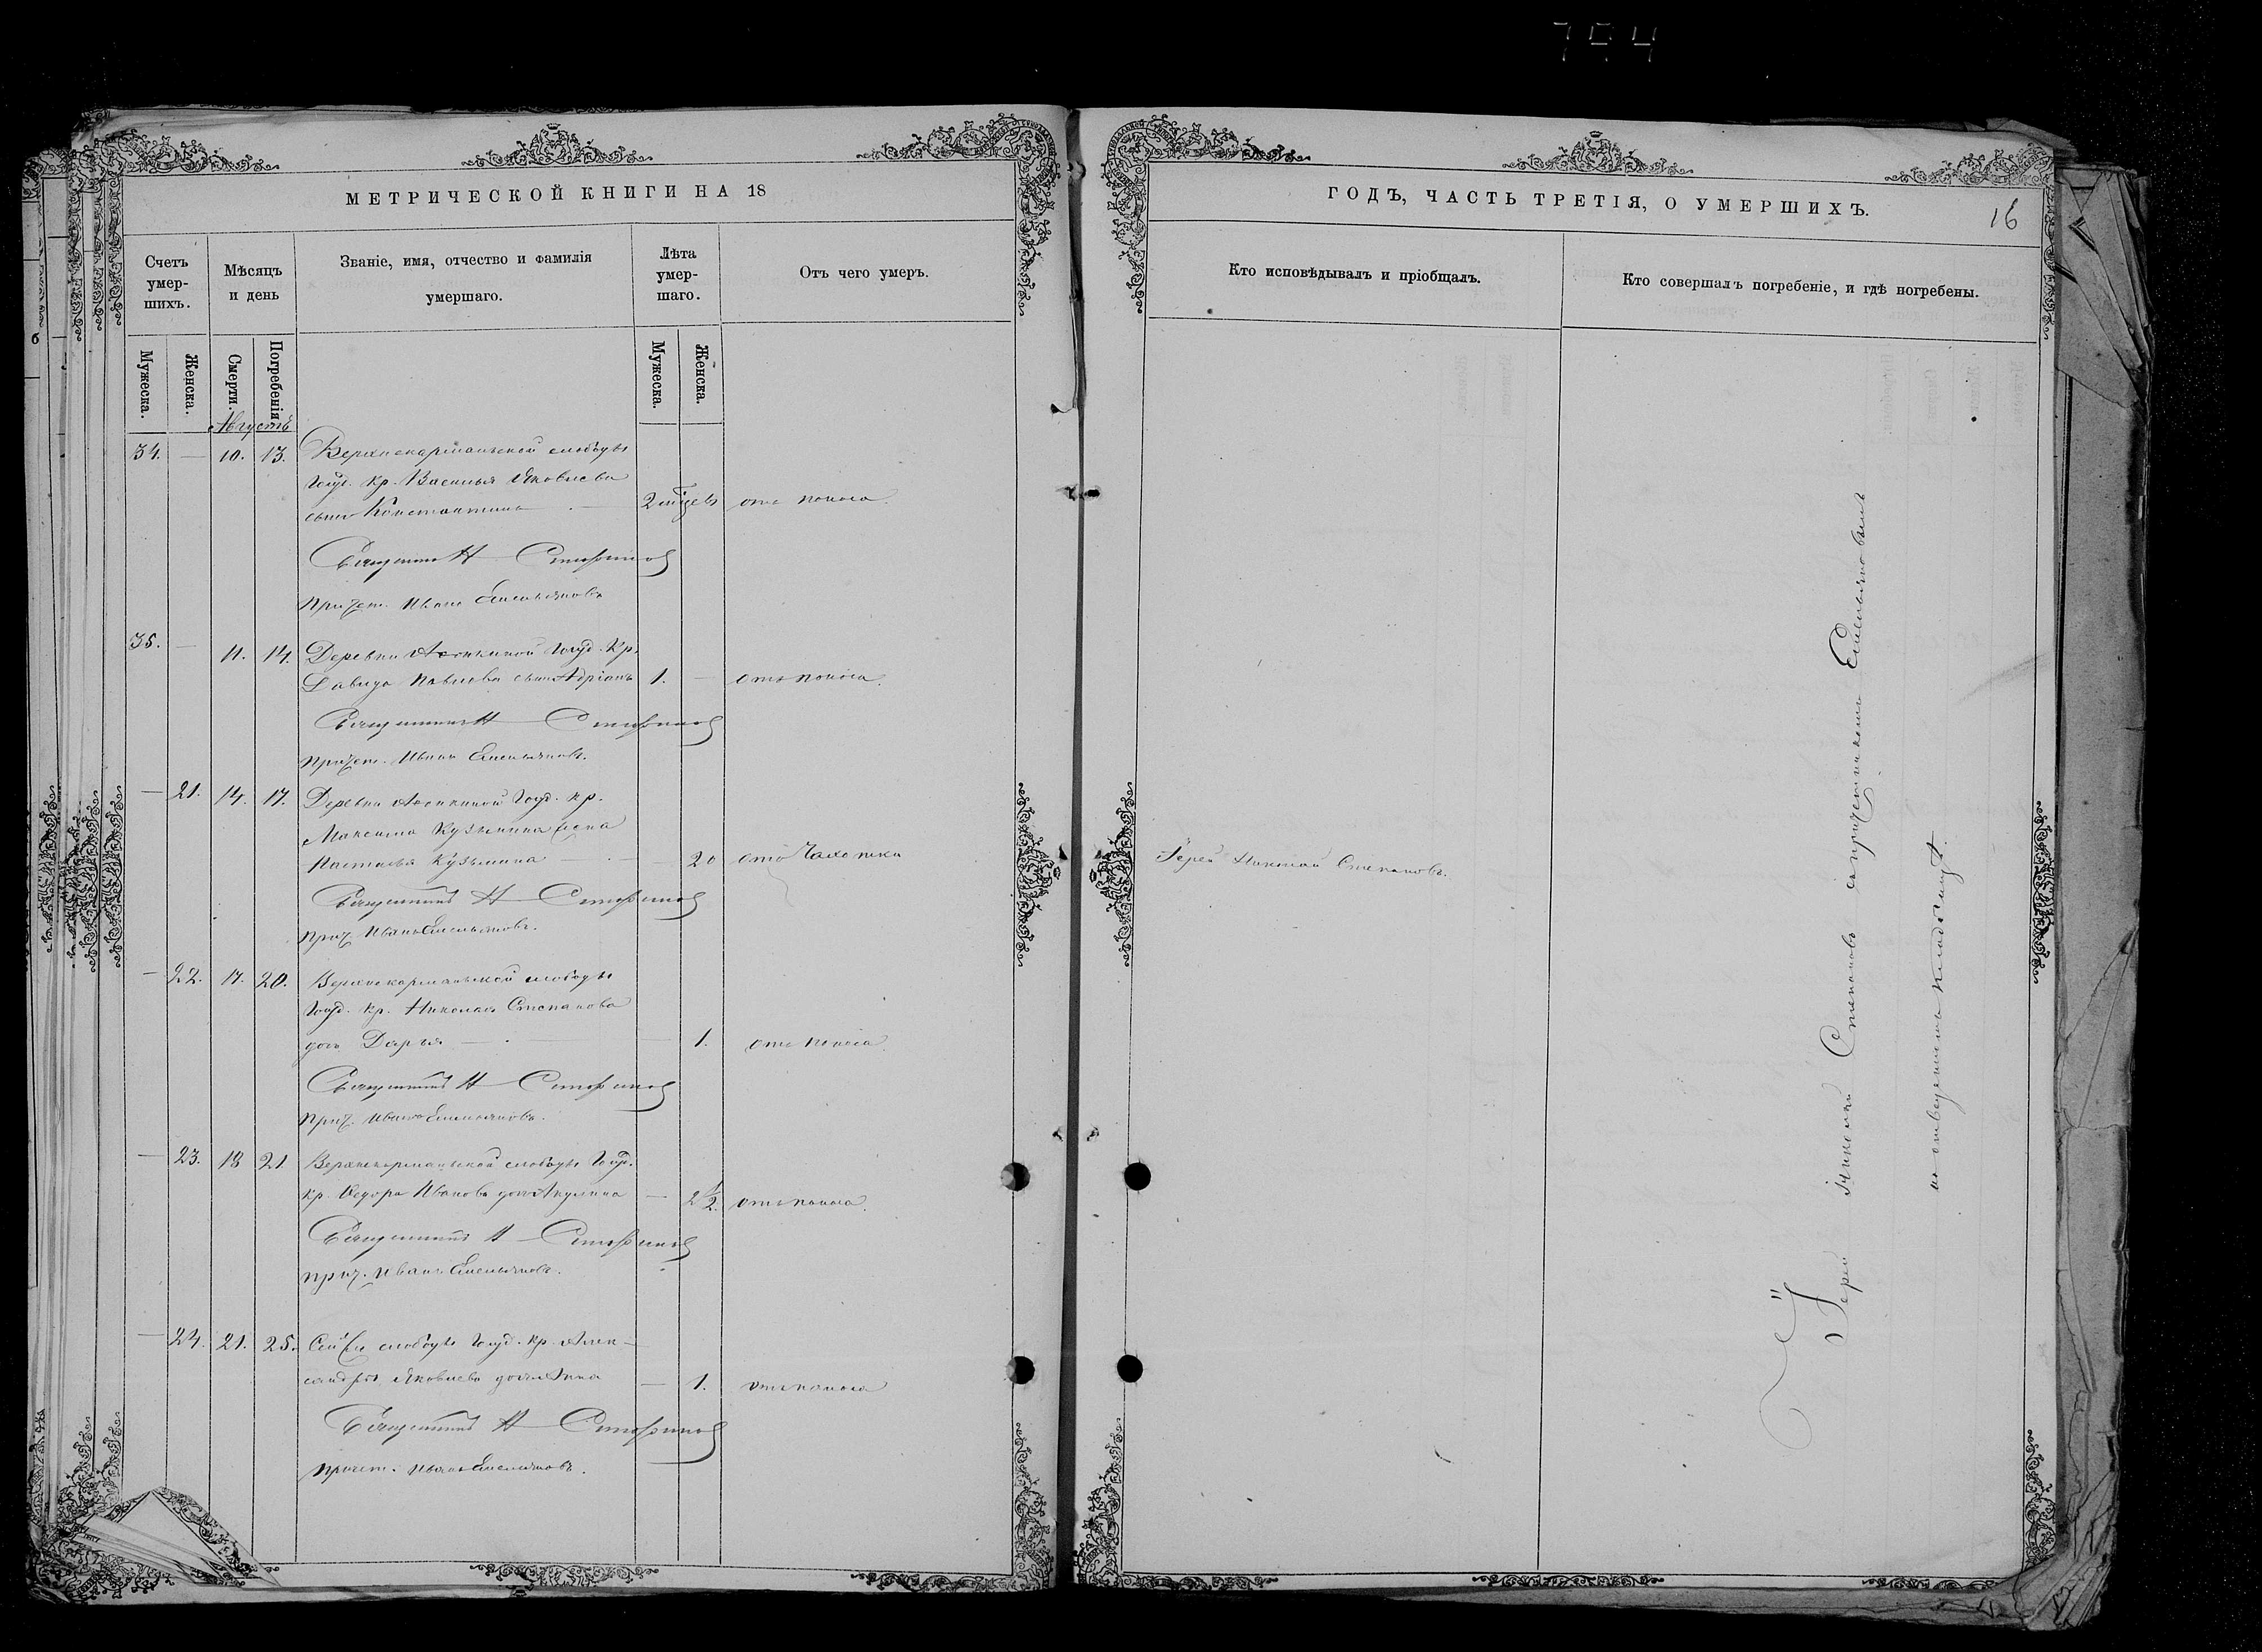 754
МЕТРИЧЕСКОЙ КНИГИ НА 18
Счетъ умер-шихъ.
Мѣсяцъ и день
Званіе, имя, отчество и фамилія умершаго.
Лѣта умер-шаго.
Отъ чего умеръ.
Мужеска.
Женска.
Смерти.
Погребенія.
Мужеска.
Женска.
Августъ
34. — 10. 13. слободы
Госуд. кр. Василья Яковлева
сынъ Константинъ — 2 отъ поноса.
Священникъ Н
Причет. Иванъ Емельяновъ
35. — 11. 14. Деревни Госуд. Кр.
Давида Павлова сынъ Адріанъ 1. — отъ поноса.
Священникъ Н
Причет. Иванъ Емельяновъ.
— 21. 14. 17. Деревни Госуд. кр.
Максима Кузьмина жена
Настасья Кузьмина — — 20 отъ Чахотки
Священникъ Н
Прич. Иванъ Емельяновъ.
— 22. 17. 20. слободы
Госуд. кр. Николая Степанова
дочь Дарья — — 1. отъ поноса.
Священникъ Н
Прич. Иванъ Емельяновъ.
— 23. 18 21 слободы Госуд.
кр. Ѳедора Иванова дочь Акулина — 2 1/2. отъ поноса.
Священникъ Н
Прич. Иванъ Емельяновъ.
— 24. 21. 25. Сей же слободы Госуд. кр. Алек-
сандра Яковлева дочь Анна — 1. отъ поноса
Священникъ Н
Причет. Иванъ Емельяновъ.
ГОДЪ, ЧАСТЬ ТРЕТІЯ, О УМЕРШИХЪ.
16
Кто исповѣдывалъ и пріобщалъ.
Кто совершалъ погребеніе, и гдѣ погребены.
Іерей Николай Степановъ.
Іерей Николай Степановъ съ причетникомъ Емельяновымъ
на отведенномъ кладбищѣ.